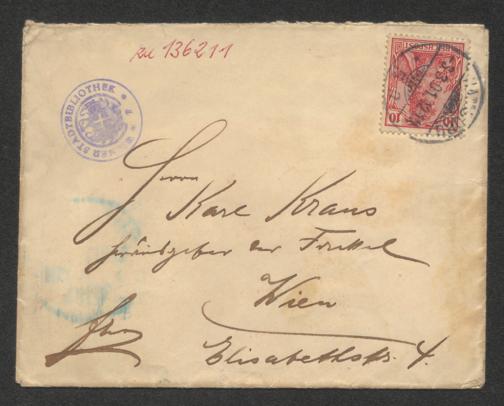 zu 136211
WIENER STADTBIBLIOTHEK
10 10
Herrn
Karl Kraus
Herausgeber der Fackel
Wien
Elisabethstr. 4.